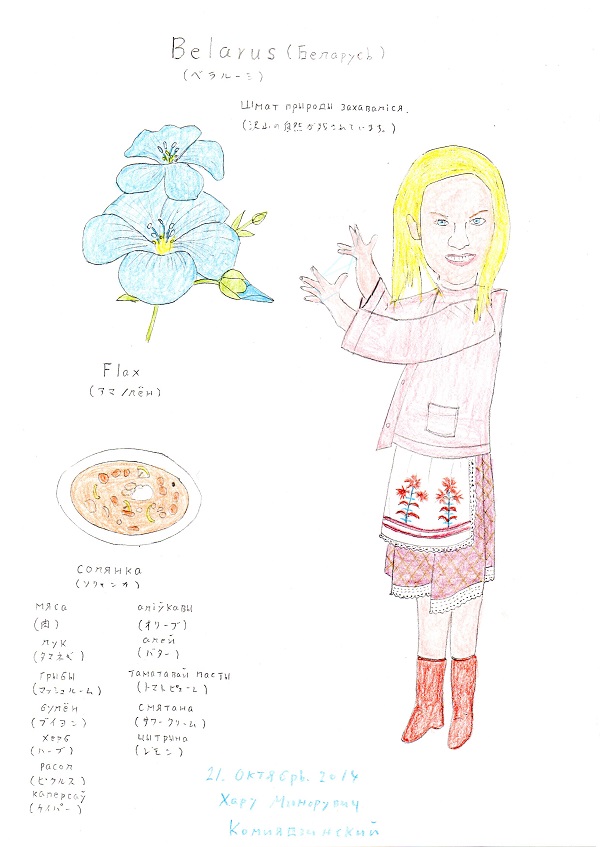 Belarus (Беларусь)
(ベラルーシ)
Шмат природы захаваліся.
(沢山の自然が残されています。)
Flax
(アマ/лён)
солянка
(ソリャンカ)
мяса аліўкавы
(肉) (オリーブ)
лук алей
(タマネギ) (バター)
грыбы таматавай пасты
(マッシュルーム) (トマトピューレ)
булён смятана
(ブイヨン) (サワークリーム)
херб цытрына
(ハーブ) (レモン)
расол
(ピクルス)
каперсаў
(ケイパー)
21. Октябрь. 2014
Хару Минорувич